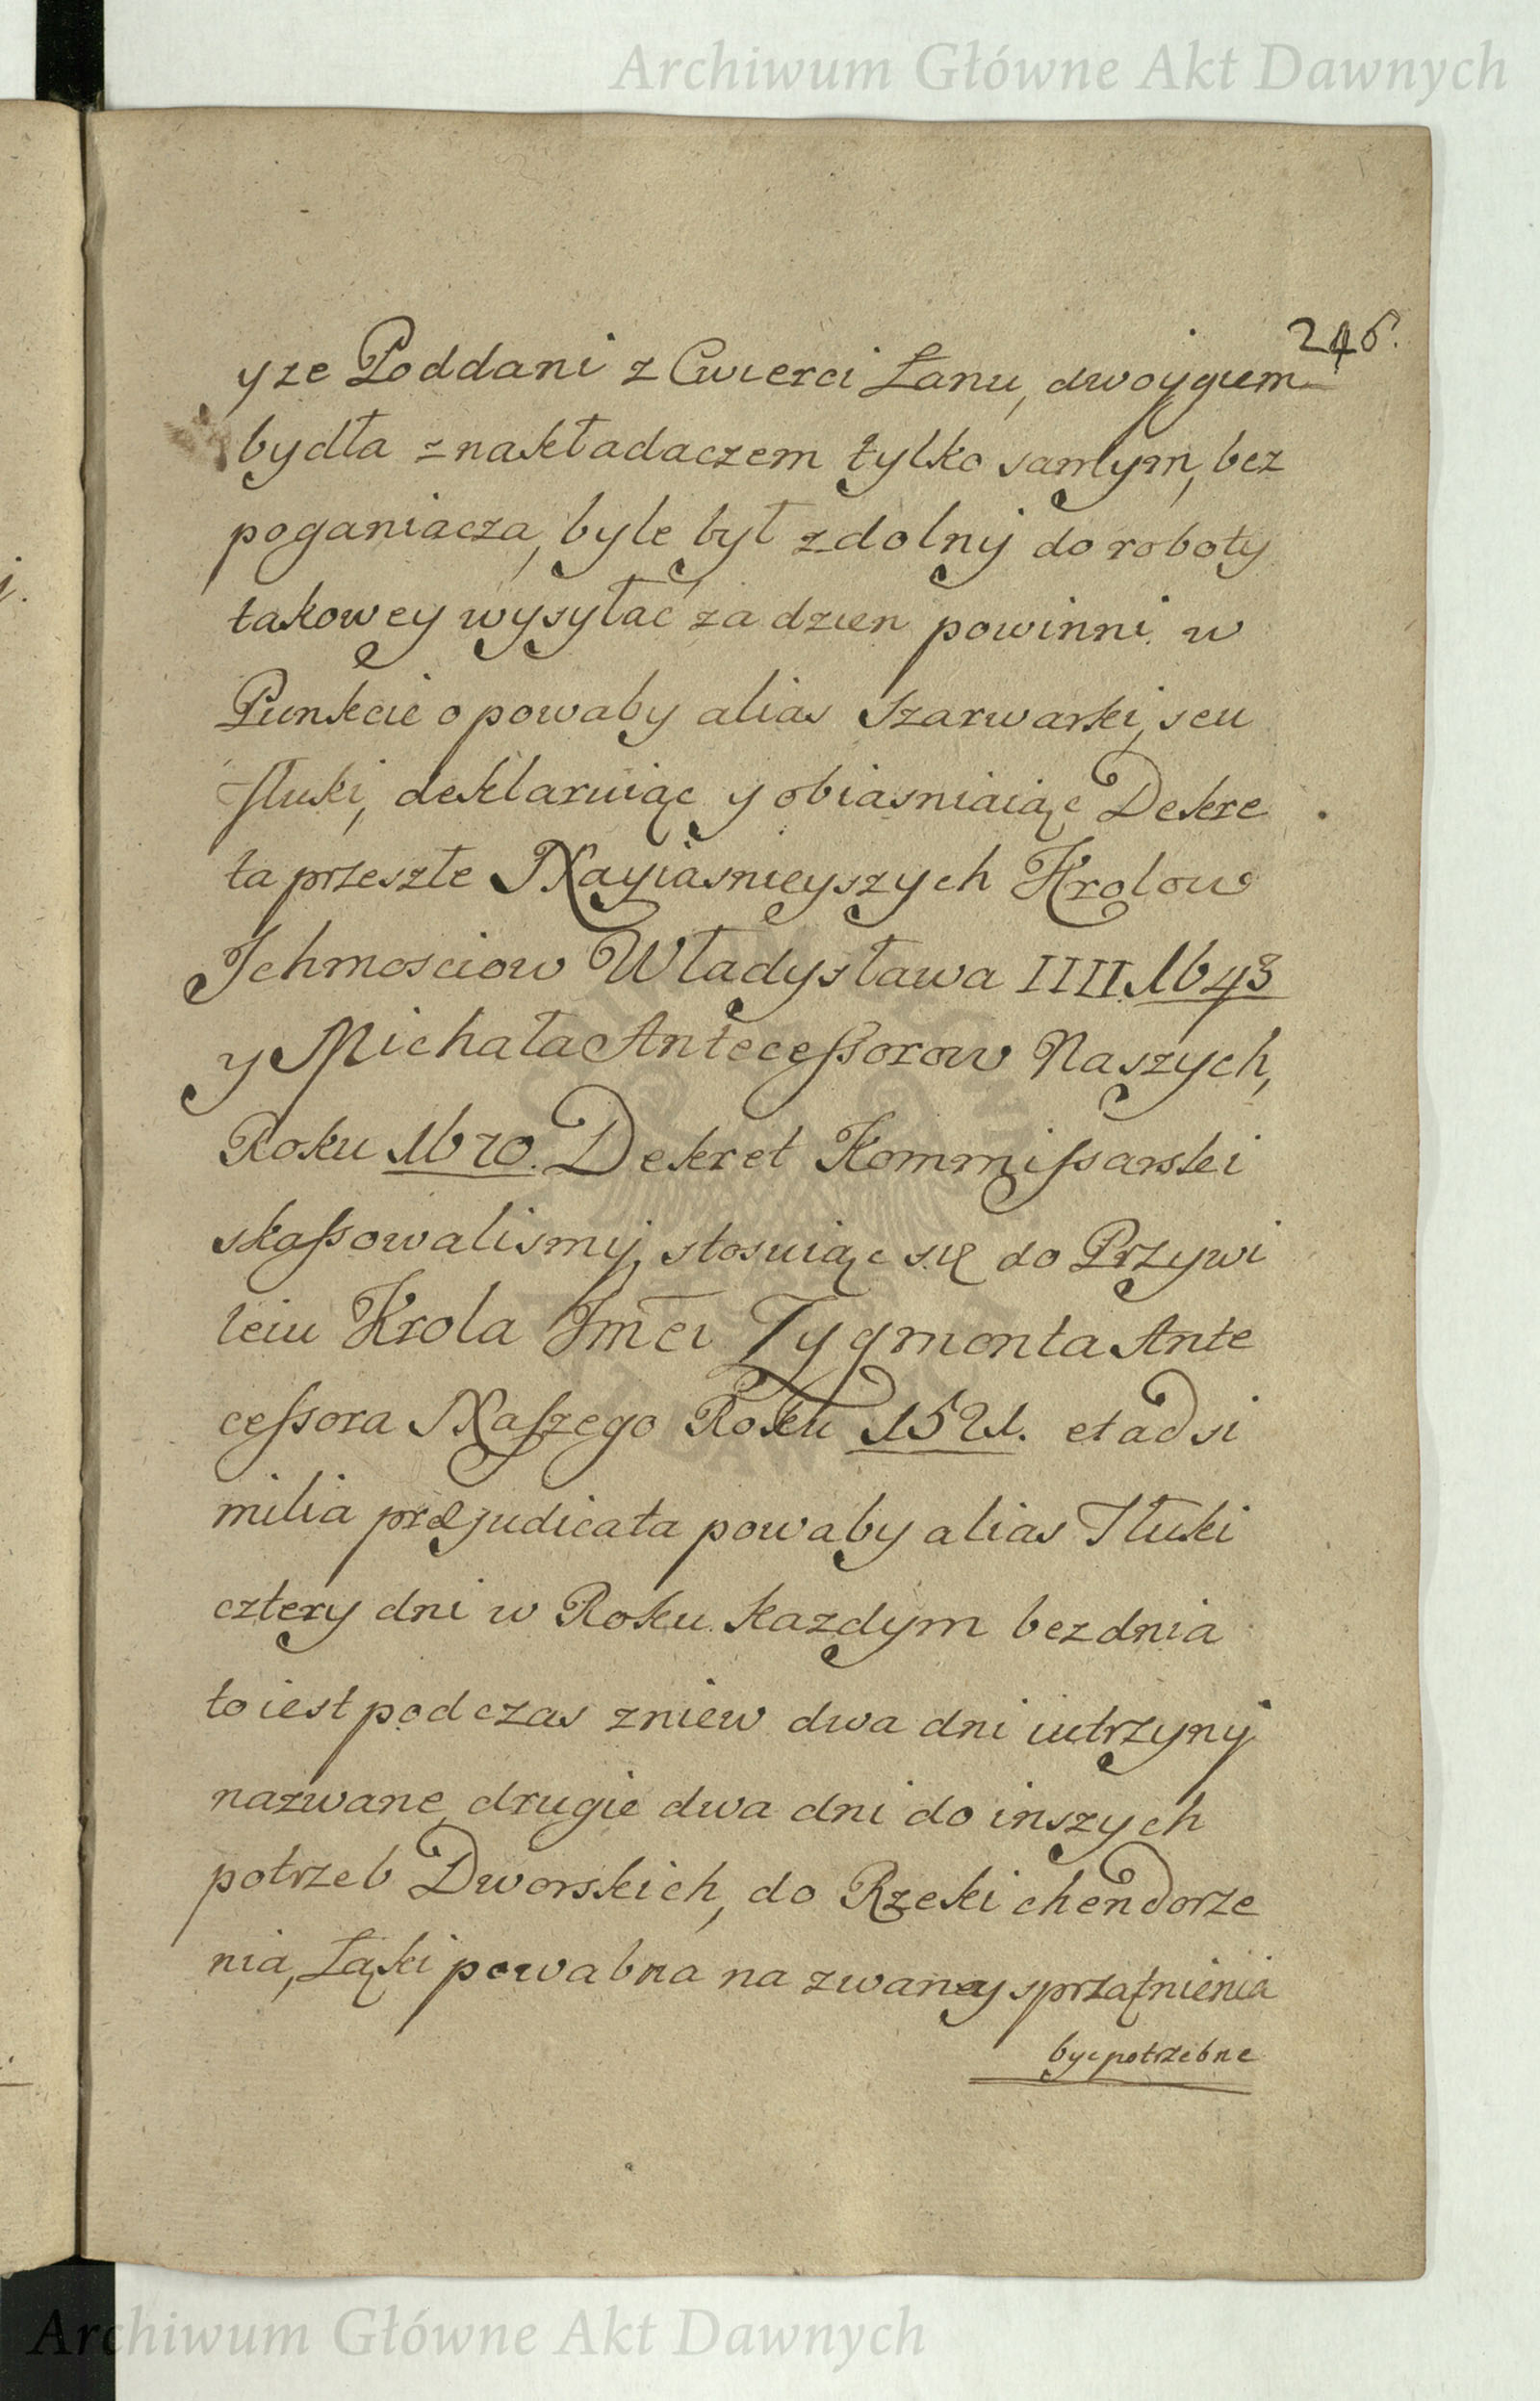 Archiwum Główne Akt Dawnych
246.
yze Poddani z Cwierci Łanu, dwoygiem
bydła z nakładaczem tylko samym, bez
poganiacza, byle był zdolny do roboty
takowey wysyłać za dzien powinni. w
Punkcie o powaby alias Szarwarki, seu
tłuki, deklaruiąc y obiasniaiąc Dekre
ta przeszłe Nayiasnieyszych Krolow
Ichmosciow Władysława IIII. 1643
y Michała Antecessorow Naszych,
Roku 1670. Dekret Kommissarski
skassowalismy, stosuiąc się do Przywi
leiu Krola Jmći Zygmonta Ante
cessora Naszego Roku 1521. et ad si
milia præjudicata powaby alias Tłuki
cztery dni w Roku kazdym bez dnia
to iest podczas zniew dwa dni iutrzyny
nazwane, drugie dwa dni do inszych
potrzeb Dworskich, do Rzeki chendorze
nia, Łąki powabna nazwaney sprzątnienia
byc potrzebne
Archiwum Główne Akt Dawnych